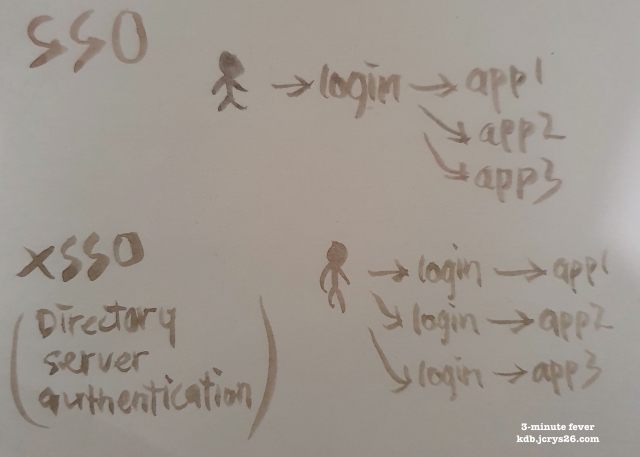 SSO
→ login → app1
→ app2
→ app3
xSSO
(Directory
server
authentication)
→ login → app1
→ login → app2
→ login → app3
3-minute fever
kdb.jcrys26.com